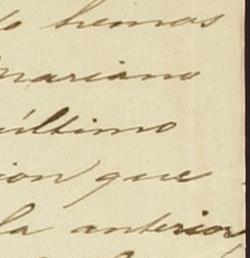 lo hemos
Mariano
último
ion que
la anterior,